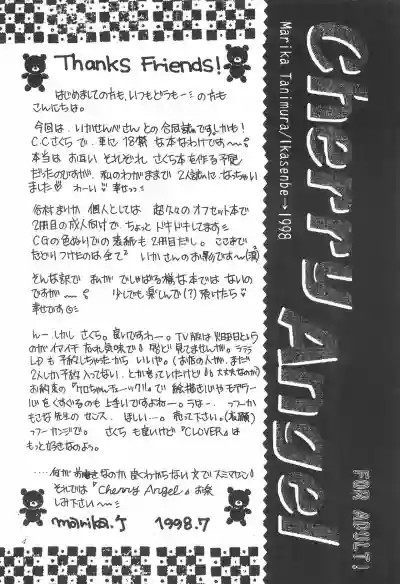 Thanks Friends!
はじめましての方も、いつもどうもーミの方も
さんにちは。
今回は、いかせんべさんとの合同誌ですしかも!
C.C.さくらで、更に18禁な本なわけですー
本当は、お互いそれぞれ、さくら本を作る予定
だったのですが、私のわがままで2人誌になっちゃい
ました わーい 幸せっっ
谷村まりか個人としては 超久々のオフセット本で
2冊目の成人向けで、ちょっとドキドキしてます
CGの色ぬりでの表紙も2冊目だし。ここまで
たどりつけたのは全て いかさんのお影ですー(涙)
そんな訳で まんがでしゃばる様な本ではないの
ですが 少しでも楽しんで(?)頂けたら
幸せです
んーしかしさくら。良いですわー。TV版は火曜日という
のがイマイチ 忘れ気味で 殆ど見てませんが。ラララ
LDも予約しちゃったからいいや。(お店の人が、まだ
2人しか予約入ってない、とか言っていたけど 大丈夫なのか)
お約束の『ケロちゃんチェーック!!』で 絵描き心やモデラー
心をくすぐるのも上手いですよねー。うなー。
もこな先生の センス、ほしいー。売って下さい。(衣願)
っつーカンジで。 さくらも良いけど『CLOVER』は
もっと好きなのよう。
……何がお書きなのか良くわからない文でスミマセン
それでは『Cherry Angel』お楽
しみ下さいー
marika.T 1998.7
4
Cherry Angel
Marika Tanimura/Ikasenbe→1998
FOR ADULT!